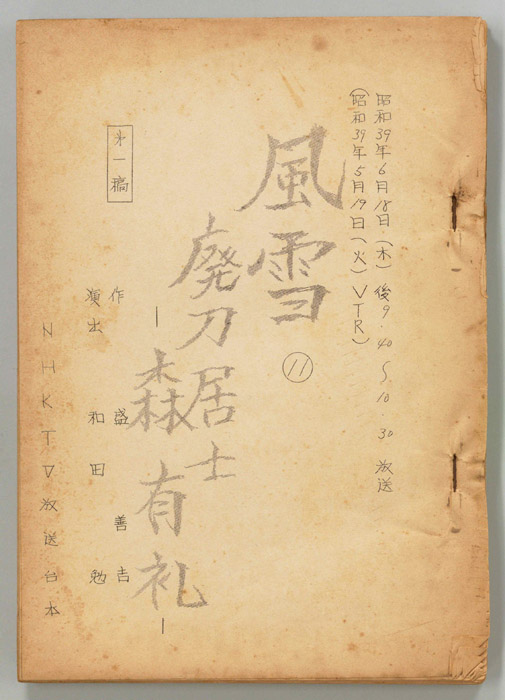 昭和39年6月18日(木)後9.40〜10.30放送
(昭和39年5月19日(火)VTR)
風雪
⑪
廃刀居士
―森有礼―
第一稿
作 盛善吉
演出 和田勉
NHKTV放送台本